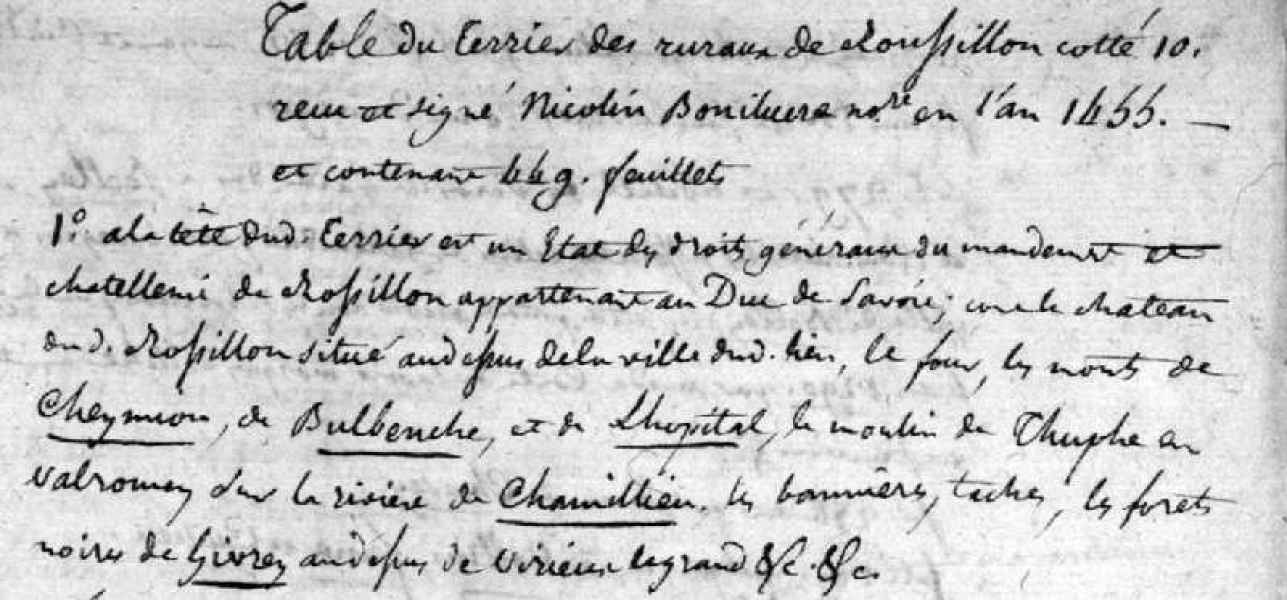 Table du terrier des ruraux de Roussillon cotté 10.
reçu et signé Nicolin no.re en l'an 1455. —
et contenant 449. feuillets
1.º a la tête dud. terrier est un Etat des droits généraux du mandement et
chatellenie de Rossillon appartenant au Duc de Savoie; le chateau
dud. Rossillon situé audessus de la ville dud. lieu, le four, les monts de
Cheymion, de Bulbenche, et de Lhopital, le moulin de Thuphe en
valromey sur la riviere de Chamillieu. les bannières, taches, les forets
noires de Givrey audessus de virieux legrand &c. &c.